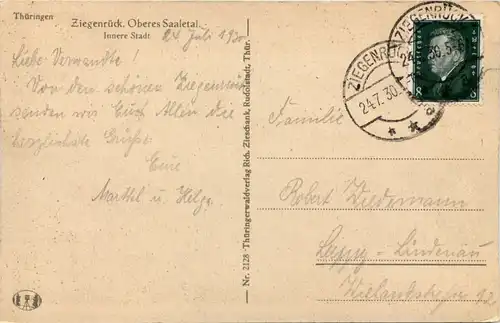 Thüringen
Ziegenrück. Oberes Saaletal.
Innere Stadt
24 Juli 1930
Liebe Verwandte!
Von dem schönen Ziegenrück
senden wir Euch Allen die
herzlichste Grüße.
Eure
Marthel u. Helga.
Nr. 2128 · Thüringerwaldverlag Rich. Zieschank, Rudolstadt, Thür.
ZIEGENRÜCK
24.7.30.
ZIEGENRÜCK
8 8
Familie
Robert Wiedemann
Leipzig-Lindenau
Wielandstraße 12